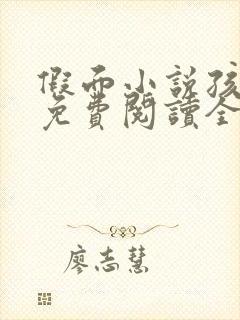 假面小說孩
免費閱讀全
廖志慧